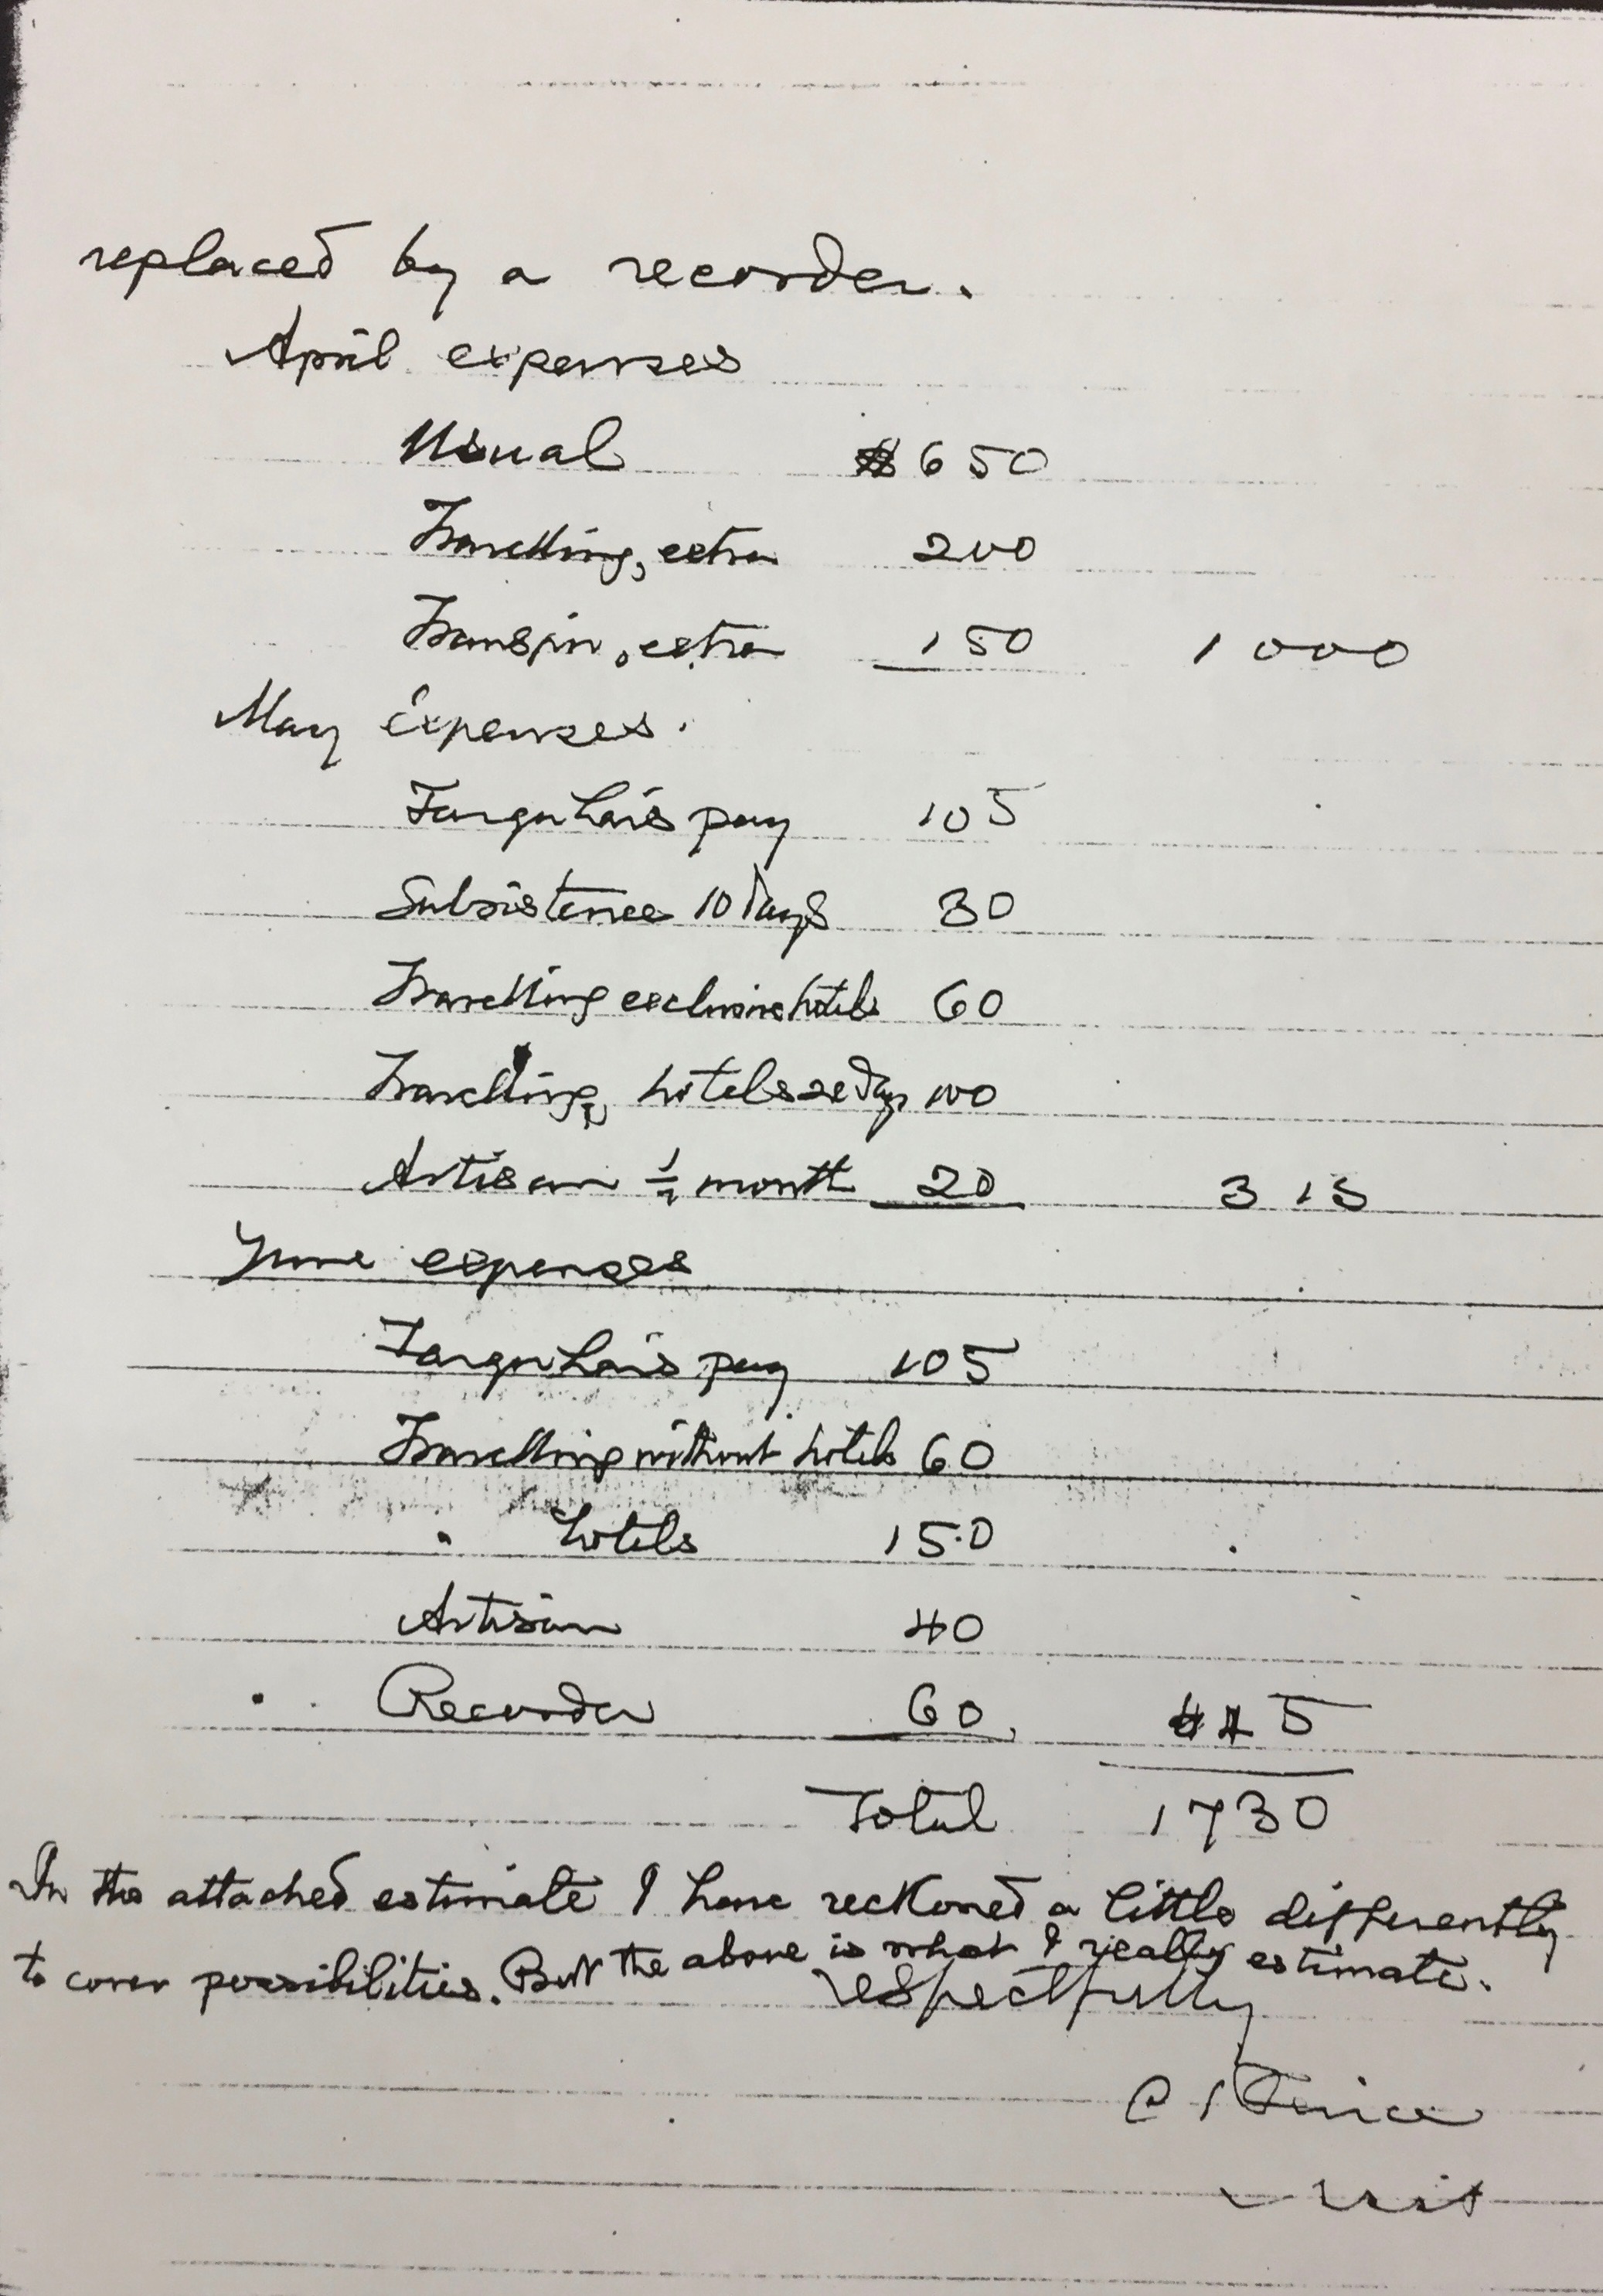 replaced by a recorder.
April expenses
Usual $650
Travelling, extra 200
Transpn, extra 150 1000
May expenses.
Farquhar's pay 105
Subsistence 10 days 30
Travelling exclusive hotels 60
Travelling, hotels 20 days 100
Artisan ½ month 20 315
June expenses
Farquhar's pay 105
Travelling without hotels 60
" hotels 150
Artisan 40
Recorder 60 415
Total 1730
In the attached estimate I have reckoned a little differently
to cover possibilities. But the above is what I really estimate.
respectfully
C S Peirce
Asst